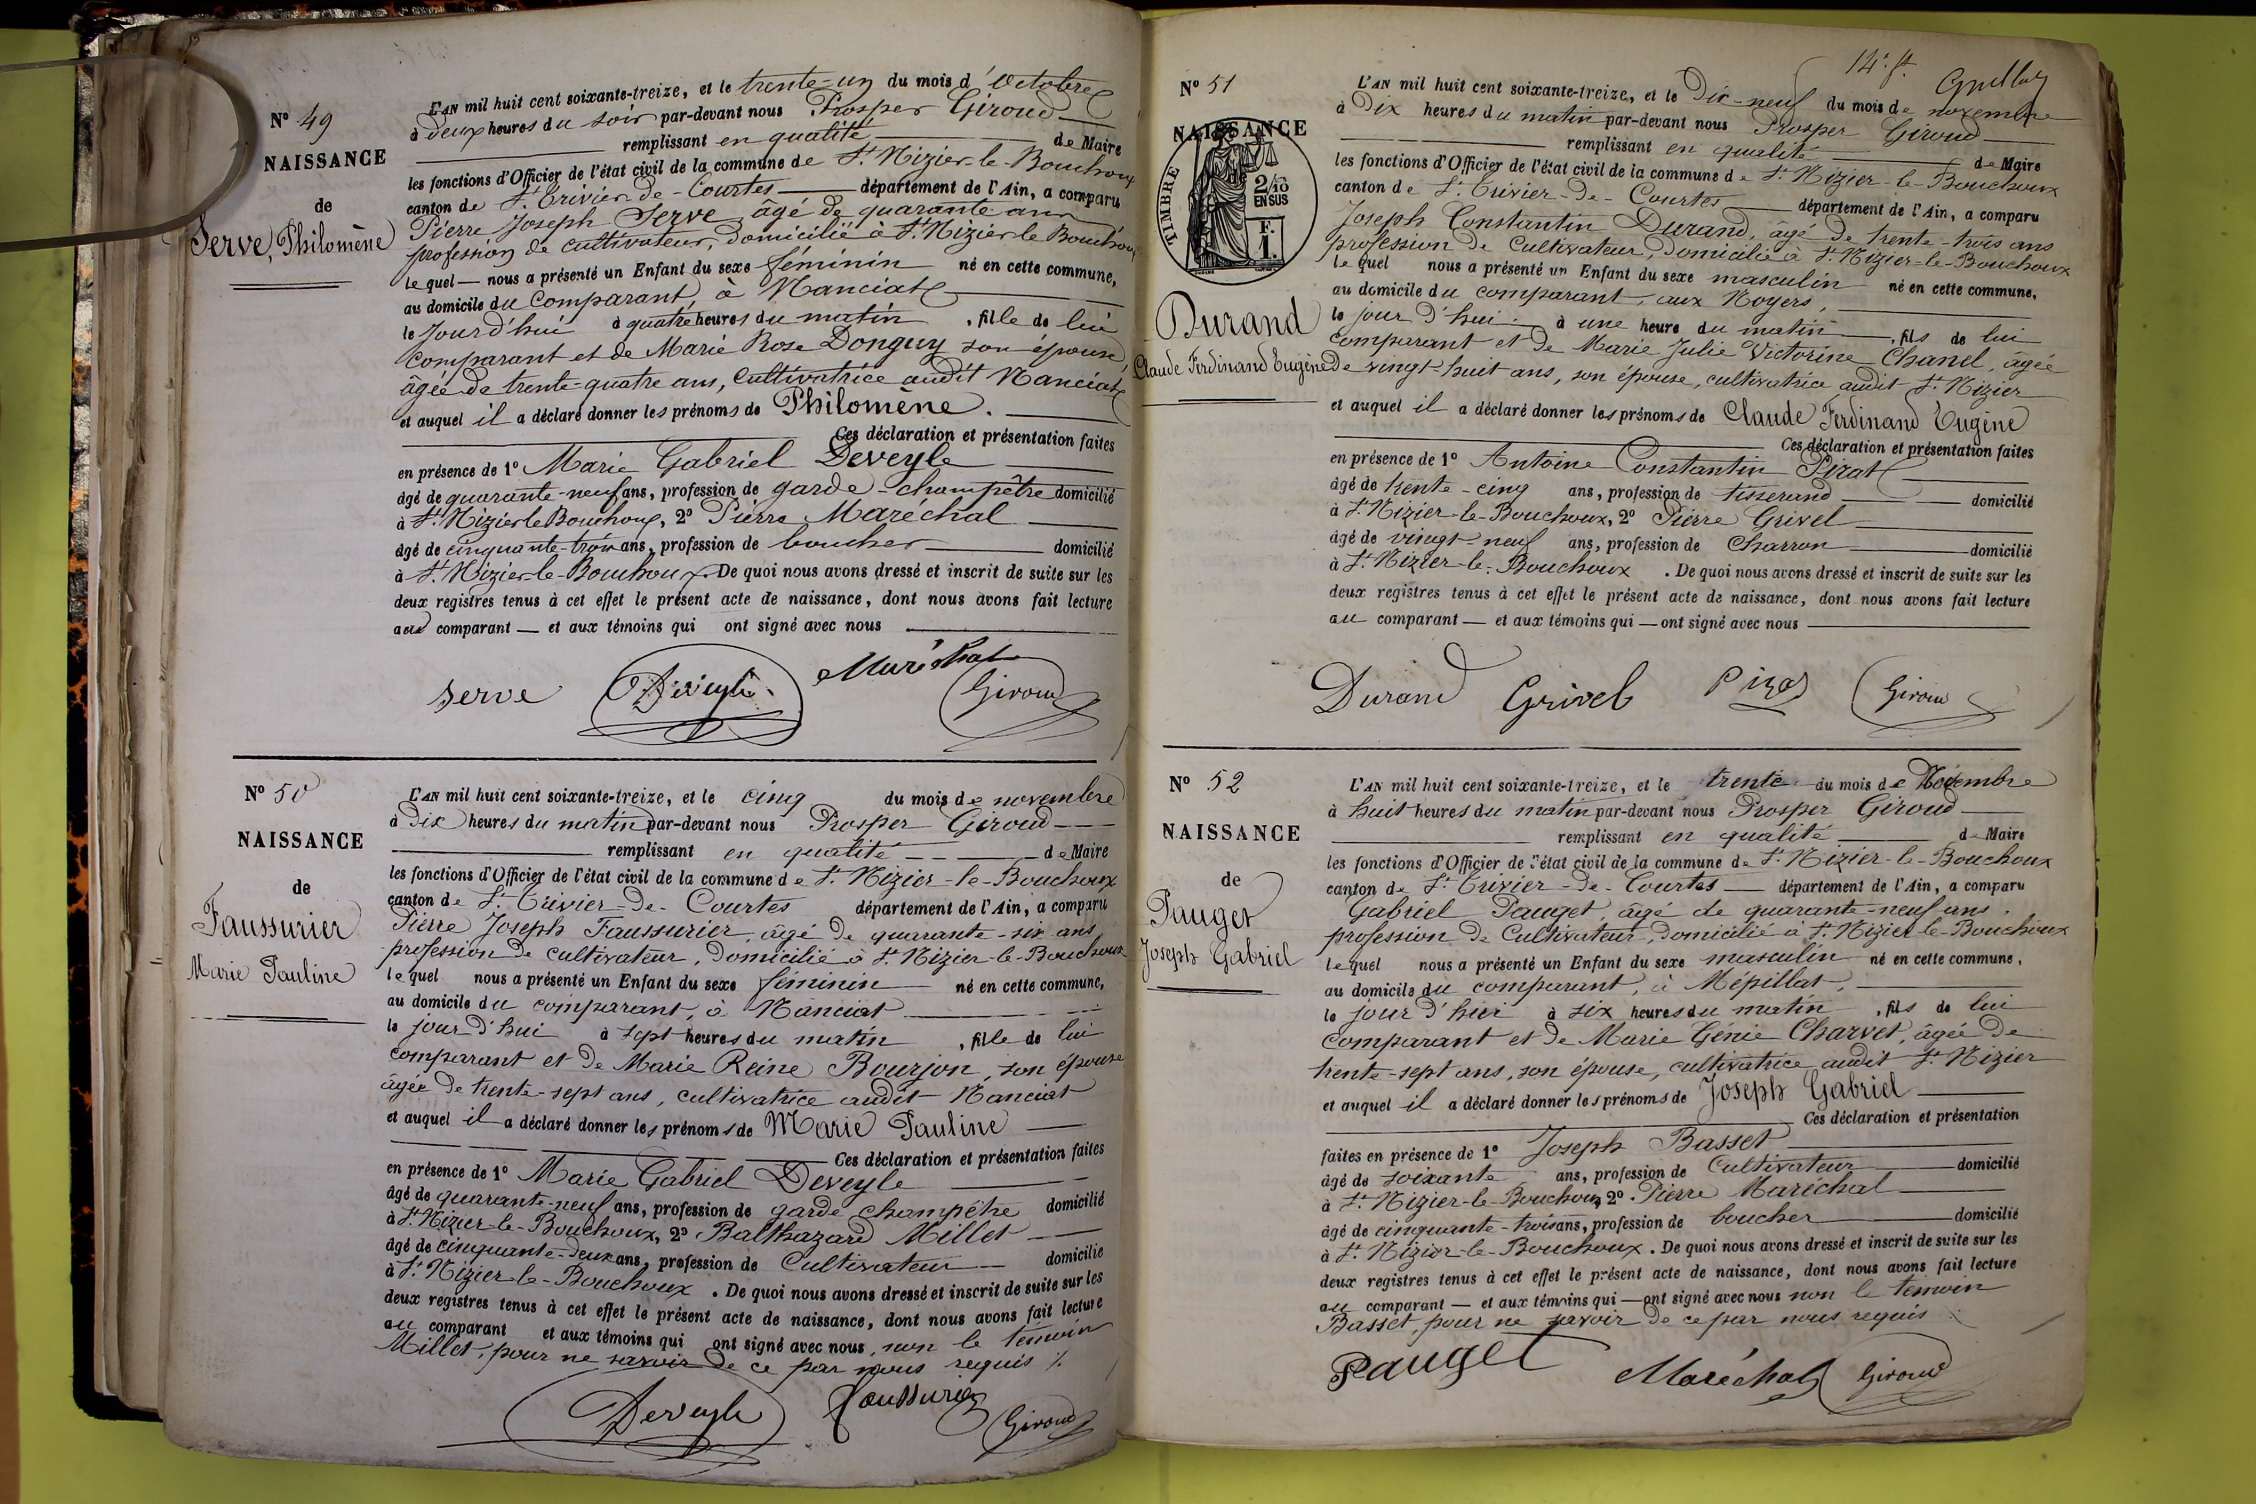 N° 49
NAISSANCE
de
Serve, Philomène
L'AN mil huit cent soixante-treize, et le trente-un du mois d'Octobre
à deux heures du soir par-devant nous Prosper Giroud
remplissant en qualité de Maire
les fonctions d'Officier de l'état civil de la commune de St Nizier-le-Bouchoux
canton de St Trivier-de-Courtes département de l'Ain, a comparu
Pierre Joseph Serve, âgé de quarante ans
profession de cultivateur, domicilié à St Nizier-le-Bouchoux
lequel nous a présenté un Enfant du sexe féminin né en cette commune,
au domicile du comparant, à Nanciat
le jour d'hui à quatre heures du matin, fille de lui
comparant et de Marie Rose Donguy son épouse,
âgée de trente-quatre ans, cultivatrice audit Nanciat
et auquel il a déclaré donner les prénoms de Philomène.
Ces déclaration et présentation faites
en présence de 1° Marie Gabriel Deveyle
âgé de quarante-neuf ans, profession de garde-champêtre domicilié
à St Nizier le Bouchoux, 2° Pierre Maréchal
âgé de cinquante-trois ans, profession de boucher domicilié
à St Nizier-le-Bouchoux. De quoi nous avons dressé et inscrit de suite sur les
deux registres tenus à cet effet le présent acte de naissance, dont nous avons fait lecture
au comparant et aux témoins qui ont signé avec nous
Serve Deveyle Maréchal Giroud
N° 50
NAISSANCE
de
Faussurier
Marie Pauline
L'AN mil huit cent soixante-treize, et le cinq du mois de novembre
à Dix heures du matin par-devant nous Prosper Giroud
remplissant en qualité de Maire
les fonctions d'Officier de l'état civil de la commune de St Nizier-le-Bouchoux
canton de St Trivier-de-Courtes département de l'Ain, a comparu
Pierre Joseph Faussurier, âgé de quarante-six ans
profession de cultivateur, domicilié à St Nizier-le-Bouchoux
lequel nous a présenté un Enfant du sexe féminin né en cette commune,
au domicile du comparant, à Nanciat
le jour d'hui à sept heures du matin, fille de lui
comparant et de Marie Reine Bourjon, son épouse
âgée de trente-sept ans, cultivatrice audit Nanciat
et auquel il a déclaré donner les prénoms de Marie Pauline
Ces déclaration et présentation faites
en présence de 1° Marie Gabriel Deveyle
âgé de quarante-neuf ans, profession de garde champêtre domicilié
à St Nizier-le-Bouchoux, 2° Balthazard Millet
âgé de cinquante-deux ans, profession de Cultivateur domicilié
à St Nizier-le-Bouchoux. De quoi nous avons dressé et inscrit de suite sur les
deux registres tenus à cet effet le présent acte de naissance, dont nous avons fait lecture
au comparant et aux témoins qui ont signé avec nous, non le témoin
Millet, pour ne savoir de ce par nous requis
Deveyle Faussurier Giroud
14e ft.
N° 51
NAISSANCE
TIMBRE
2/10
EN SUS
F.
1.
Durand
Claude Ferdinand Eugène
L'AN mil huit cent soixante-treize, et le Dix-neuf du mois de novembre
à Dix heures du matin par-devant nous Prosper Giroud
remplissant en qualité de Maire
les fonctions d'Officier de l'état civil de la commune de St Nizier-le-Bouchoux
canton de St Trivier-de-Courtes département de l'Ain, a comparu
Joseph Constantin Durand, âgé de trente-trois ans
profession de Cultivateur, domicilié à St Nizier-le-Bouchoux
lequel nous a présenté un Enfant du sexe masculin né en cette commune,
au domicile du comparant, aux Noyers,
le jour d'hui à une heure du matin, fils de lui
comparant et de Marie Julie Victorine Chanel, âgée
de vingt-huit ans, son épouse, cultivatrice audit St Nizier
et auquel il a déclaré donner les prénoms de Claude Ferdinand Eugène
Ces déclaration et présentation faites
en présence de 1° Antoine Constantin Pizat
âgé de trente-cinq ans, profession de tisserand domicilié
à St Nizier-le-Bouchoux, 2° Pierre Grivel
âgé de vingt-neuf ans, profession de Charron domicilié
à St Nizier-le-Bouchoux. De quoi nous avons dressé et inscrit de suite sur les
deux registres tenus à cet effet le présent acte de naissance, dont nous avons fait lecture
au comparant et aux témoins qui ont signé avec nous
Durand Grivel Pizat Giroud
N° 52
NAISSANCE
de
Pauget
Joseph Gabriel
L'AN mil huit cent soixante-treize, et le trente du mois de Novembre
à huit heures du matin par-devant nous Prosper Giroud
remplissant en qualité de Maire
les fonctions d'Officier de l'état civil de la commune de St Nizier-le-Bouchoux
canton de St Trivier-de-Courtes département de l'Ain, a comparu
Gabriel Pauget, âgé de quarante-neuf ans,
profession de Cultivateur, domicilié à St Nizier-le-Bouchoux
lequel nous a présenté un Enfant du sexe masculin né en cette commune,
au domicile du comparant, à Mépillat,
le jour d'hier à six heures du matin, fils de lui
comparant et de Marie Génie Charvet, âgée de
trente-sept ans, son épouse, cultivatrice audit St Nizier
et auquel il a déclaré donner les prénoms de Joseph Gabriel
Ces déclaration et présentation
faites en présence de 1° Joseph Basset
âgé de soixante ans, profession de Cultivateur domicilié
à St Nizier-le-Bouchoux, 2° Pierre Maréchal
âgé de cinquante-trois ans, profession de boucher domicilié
à St Nizier-le-Bouchoux. De quoi nous avons dressé et inscrit de suite sur les
deux registres tenus à cet effet le présent acte de naissance, dont nous avons fait lecture
au comparant et aux témoins qui ont signé avec nous non le témoin
Basset, pour ne savoir de ce par nous requis
Pauget Maréchal Giroud